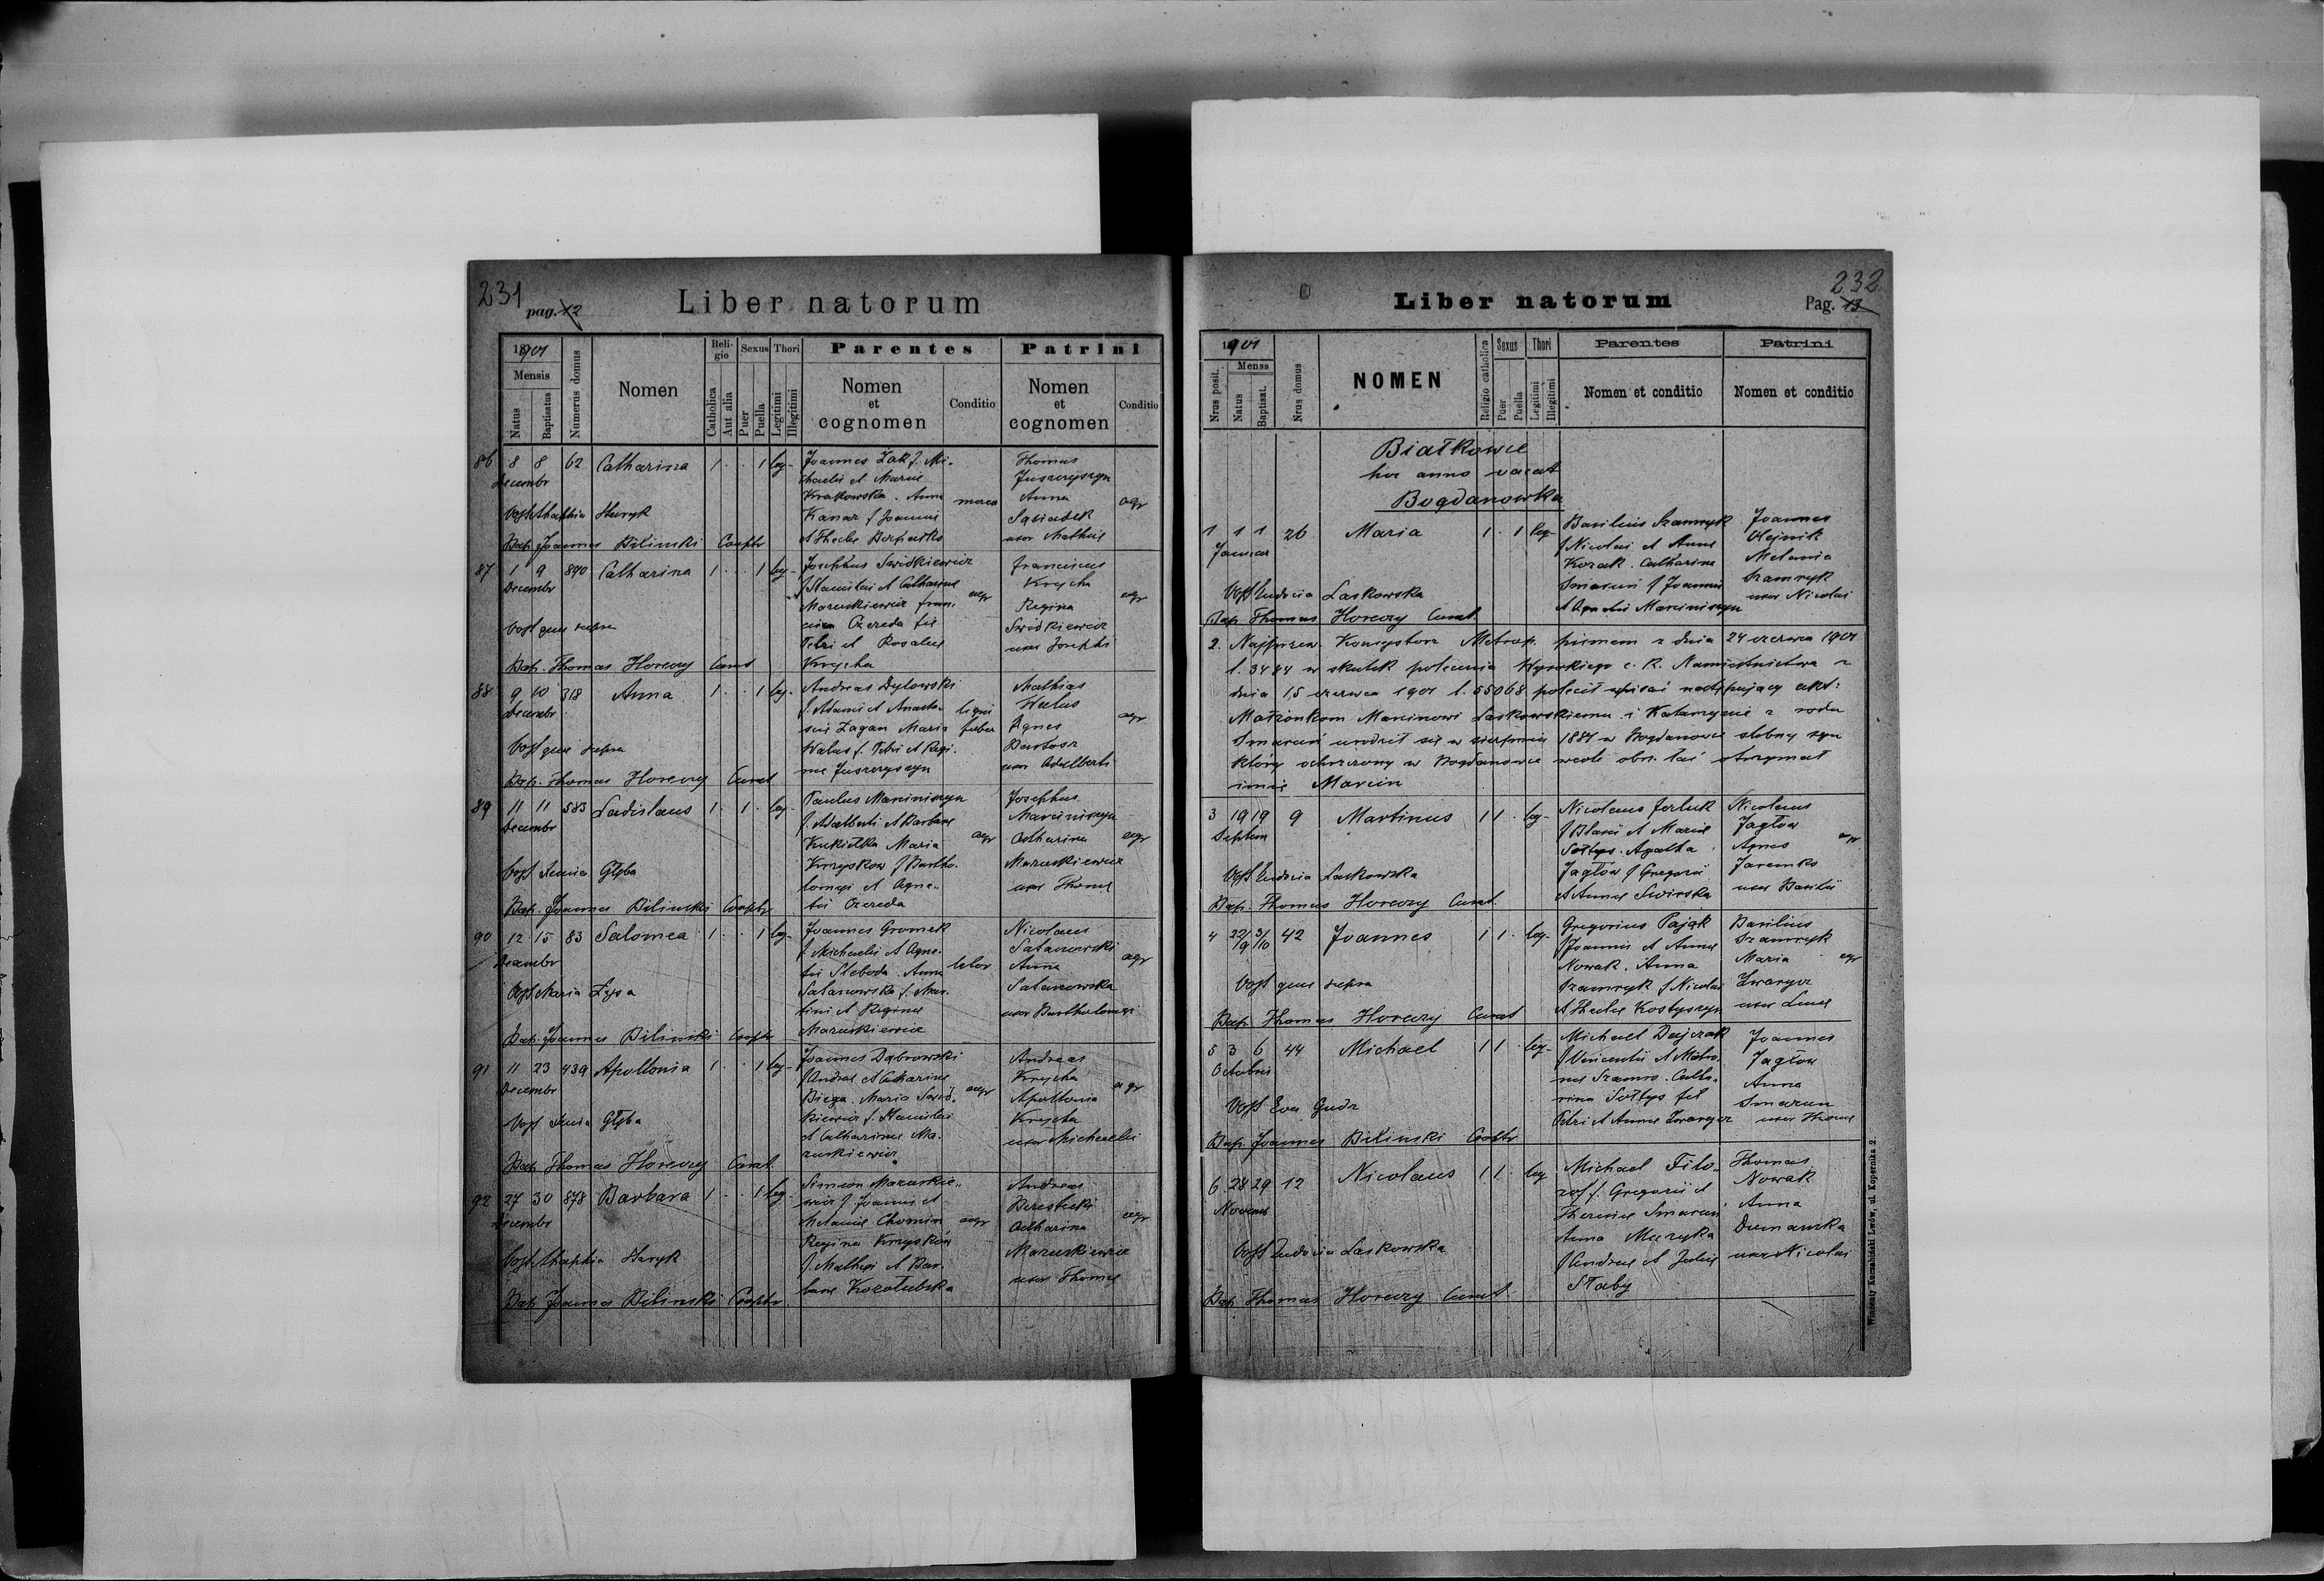 231
pag. 12
Liber natorum
1901
Mensis
Natus
Baptisatus
Numerus domus
Nomen
Religio
Catholica
Aut alia
Sexus
Puer
Puella
Thori
Legitimi
Illegitimi
Parentes
Nomen et cognomen
Conditio
Patrini
Nomen et cognomen
Conditio
86 8 8 62 Catharina 1 . . 1 leg-
Decembr
Joannes Żak f. Mi-
chaelis et Mariae
Krakowska. Anna
Kanar f Joannis
et Theclae
Thomas
Juszczyszyn
Anna
Sąsiadek
uxor Mathiae
agr
Obst Haryk
Bap. Joannes Bilinski Cooptr
87 1 9 890 Catharina 1 . . 1 leg-
Decembr
Josephus Swidkiewicz
f Stanislai et Catharinae
Mazurkiewicz fran.
cisca Czereda fil
Petri et Rosaliae
Krycha
agr
Franciscus
Krycha
Regina
Swidkiewicz
uxor Josephi
agr
Obst quae supra
Bap. Thomas Horeczy Curat
88 9 10 318 Anna 1 . . 1 leg-
Decembr
Andreas Dylowski
f. Adami et Anasta-
siae Zagan Maria
Walus f. Petri et Regi-
nae Juszczyszyn
ligni
faber
Mathias
Walus
Agnes
Bartosz
uxor Adalberti
agr
Obst quae supra
Bap. Thomas Horeczy Curat
89 11 11 583 Ladislaus 1 . 1 . leg-
Decembr
Paulus Marciniszyn
f. Adalberti et Barbarae
Kukiełka Maria
Krzyskow f Bartho-
lomaei et Agne-
tis Czereda
agr
Josephus
Marciniszyn
Catharina
Mazurkiewicz
uxor Thomae
agr
Obst Xenia Głęba
Bap. Joannes Bilinski Cooptr
90 12 15 83 Salomea 1 . . 1 leg-
Decembr
Joannes Gromek
f. Michaelis et Agne-
tis Sleboda. Anna
Satanowska f. Mar-
tini et Reginae
Mazurkiewicz
Nicolaus
Satanowski
Anna
Satanowska
uxor Bartholomaei
agr
Obst Maria Zysa
Bap. Joannes Bilinski Cooptr
91 11 23 439 Apollonia 1 . . 1 leg-
Decembr
Joannes Dąbrowski
f Andreae et Catharinae
Biega. Maria Swid-
kiewicz f. Stanislai
et Catharinae Ma-
zurkiewicz
agr
Andreas
Krycha
Apollonia
Krycha
uxor Michaelis
agr
Obst Xenia Głęba
Bap Thomas Horeczy Curat
92 27 30 878 Barbara 1 . . 1 leg-
Decembr
Simeon Mazurkie-
wicz f. Joannis et
Melaniae Chomin
Regina Krzysków
f. Mathaei et Bar-
barae Kozołubska
agr
Andreas
Berestecki
Catharina
Mazurkiewicz
uxor Thomae
agr
Obst Haryk
Bap Joannes Bilinski Cooptr
232
Pag. 13
Liber natorum
1901
Nrus posit.
Menss
Natus
Baptisat.
Nrus domus
NOMEN
Religio catholica
Sexus
Puer
Puella
Thori
Legitimi
Illegitimi
Parentes
Nomen et conditio
Patrini
Nomen et conditio
Białkowce
hoc anno vacat
Bogdanowka
1 1 1 26 Maria 1 . 1 leg-
Januar
Basilius Szamryk
f Nicolai et Annae
Kozak. Catharina
Smacun f Joannis
et Agnetis Marciniszyn
Joannes
Olejnik
Melania
Szamryk
uxor Nicolai
Obst Eudocia Laskowska
Bap. Thomas Horeczy Curat.
2. Najprzew. Konsystorz Metrop. pismem z dnia 24 czerwca 1901
l. 3484 w skutek polecenia Wysokiego c. k. Namiestnictwa z
dnia 15 czerwca 1901 l. 55068 polecił wpisać następujący akt:
Małżonkom Marcinowi Laskowskiemu i Katarzynie z rodu
Smacuń urodził się w sierpniu 1884 w Bogdanowce ślubny syn
który ochrzczony w Bogdanowce wedle obrz. łać otrzymał
imię Marcin
3 19 19 9 Martinus 1 1 . leg-
Septem
Nicolaus Jerluk
f Blasii et Mariae
Sołtys. Agatha
Jagłow f Gregorii
et Annae Swirska
Nicolaus
Jagłow
Agnes
Jaremko
uxor Basilii
agr
Obst Eudocia Laskowska
Bap. Thomas Horeczy Curat.
4 22/9 3/10 42 Joannes 1 1 . leg-
Gregorius Pająk
f Joannis et Annae
Nowak. Anna
Szamryk f Nicolai
et Theclae Kostyszyn
Basilius
Szamryk
Maria
Zwarycz
uxor Lucae
agr
Obst quae supra
Bap. Thomas Horeczy Curat
5 3 6 44 Michael 1 1 . leg-
Octobris
Michael Dajczak
f Vincentii et Matro-
nae Szamro. Catha-
rina Sołtys fil
Petri et Annae Zwarycz
Joannes
Jagłow
Anna
Smacun
uxor Thomae
Obst Eva Gudz
Bap. Joannes Bilinski Cooptr
6 28 29 12 Nicolaus 1 1 . leg
Novemb
Michael Filo-
zof f. Gregorii et
Theresiae Smacun
Anna Muzyka
f Andreae et Juliae
Słaby
Thomas
Nowak
Anna
Dumanska
uxor Nicolai
Obst Eudocia Laskowska
Bap Thomas Horeczy Curat.
Wincenty Kuczabiński Lwów, ul. Kopernika 2.